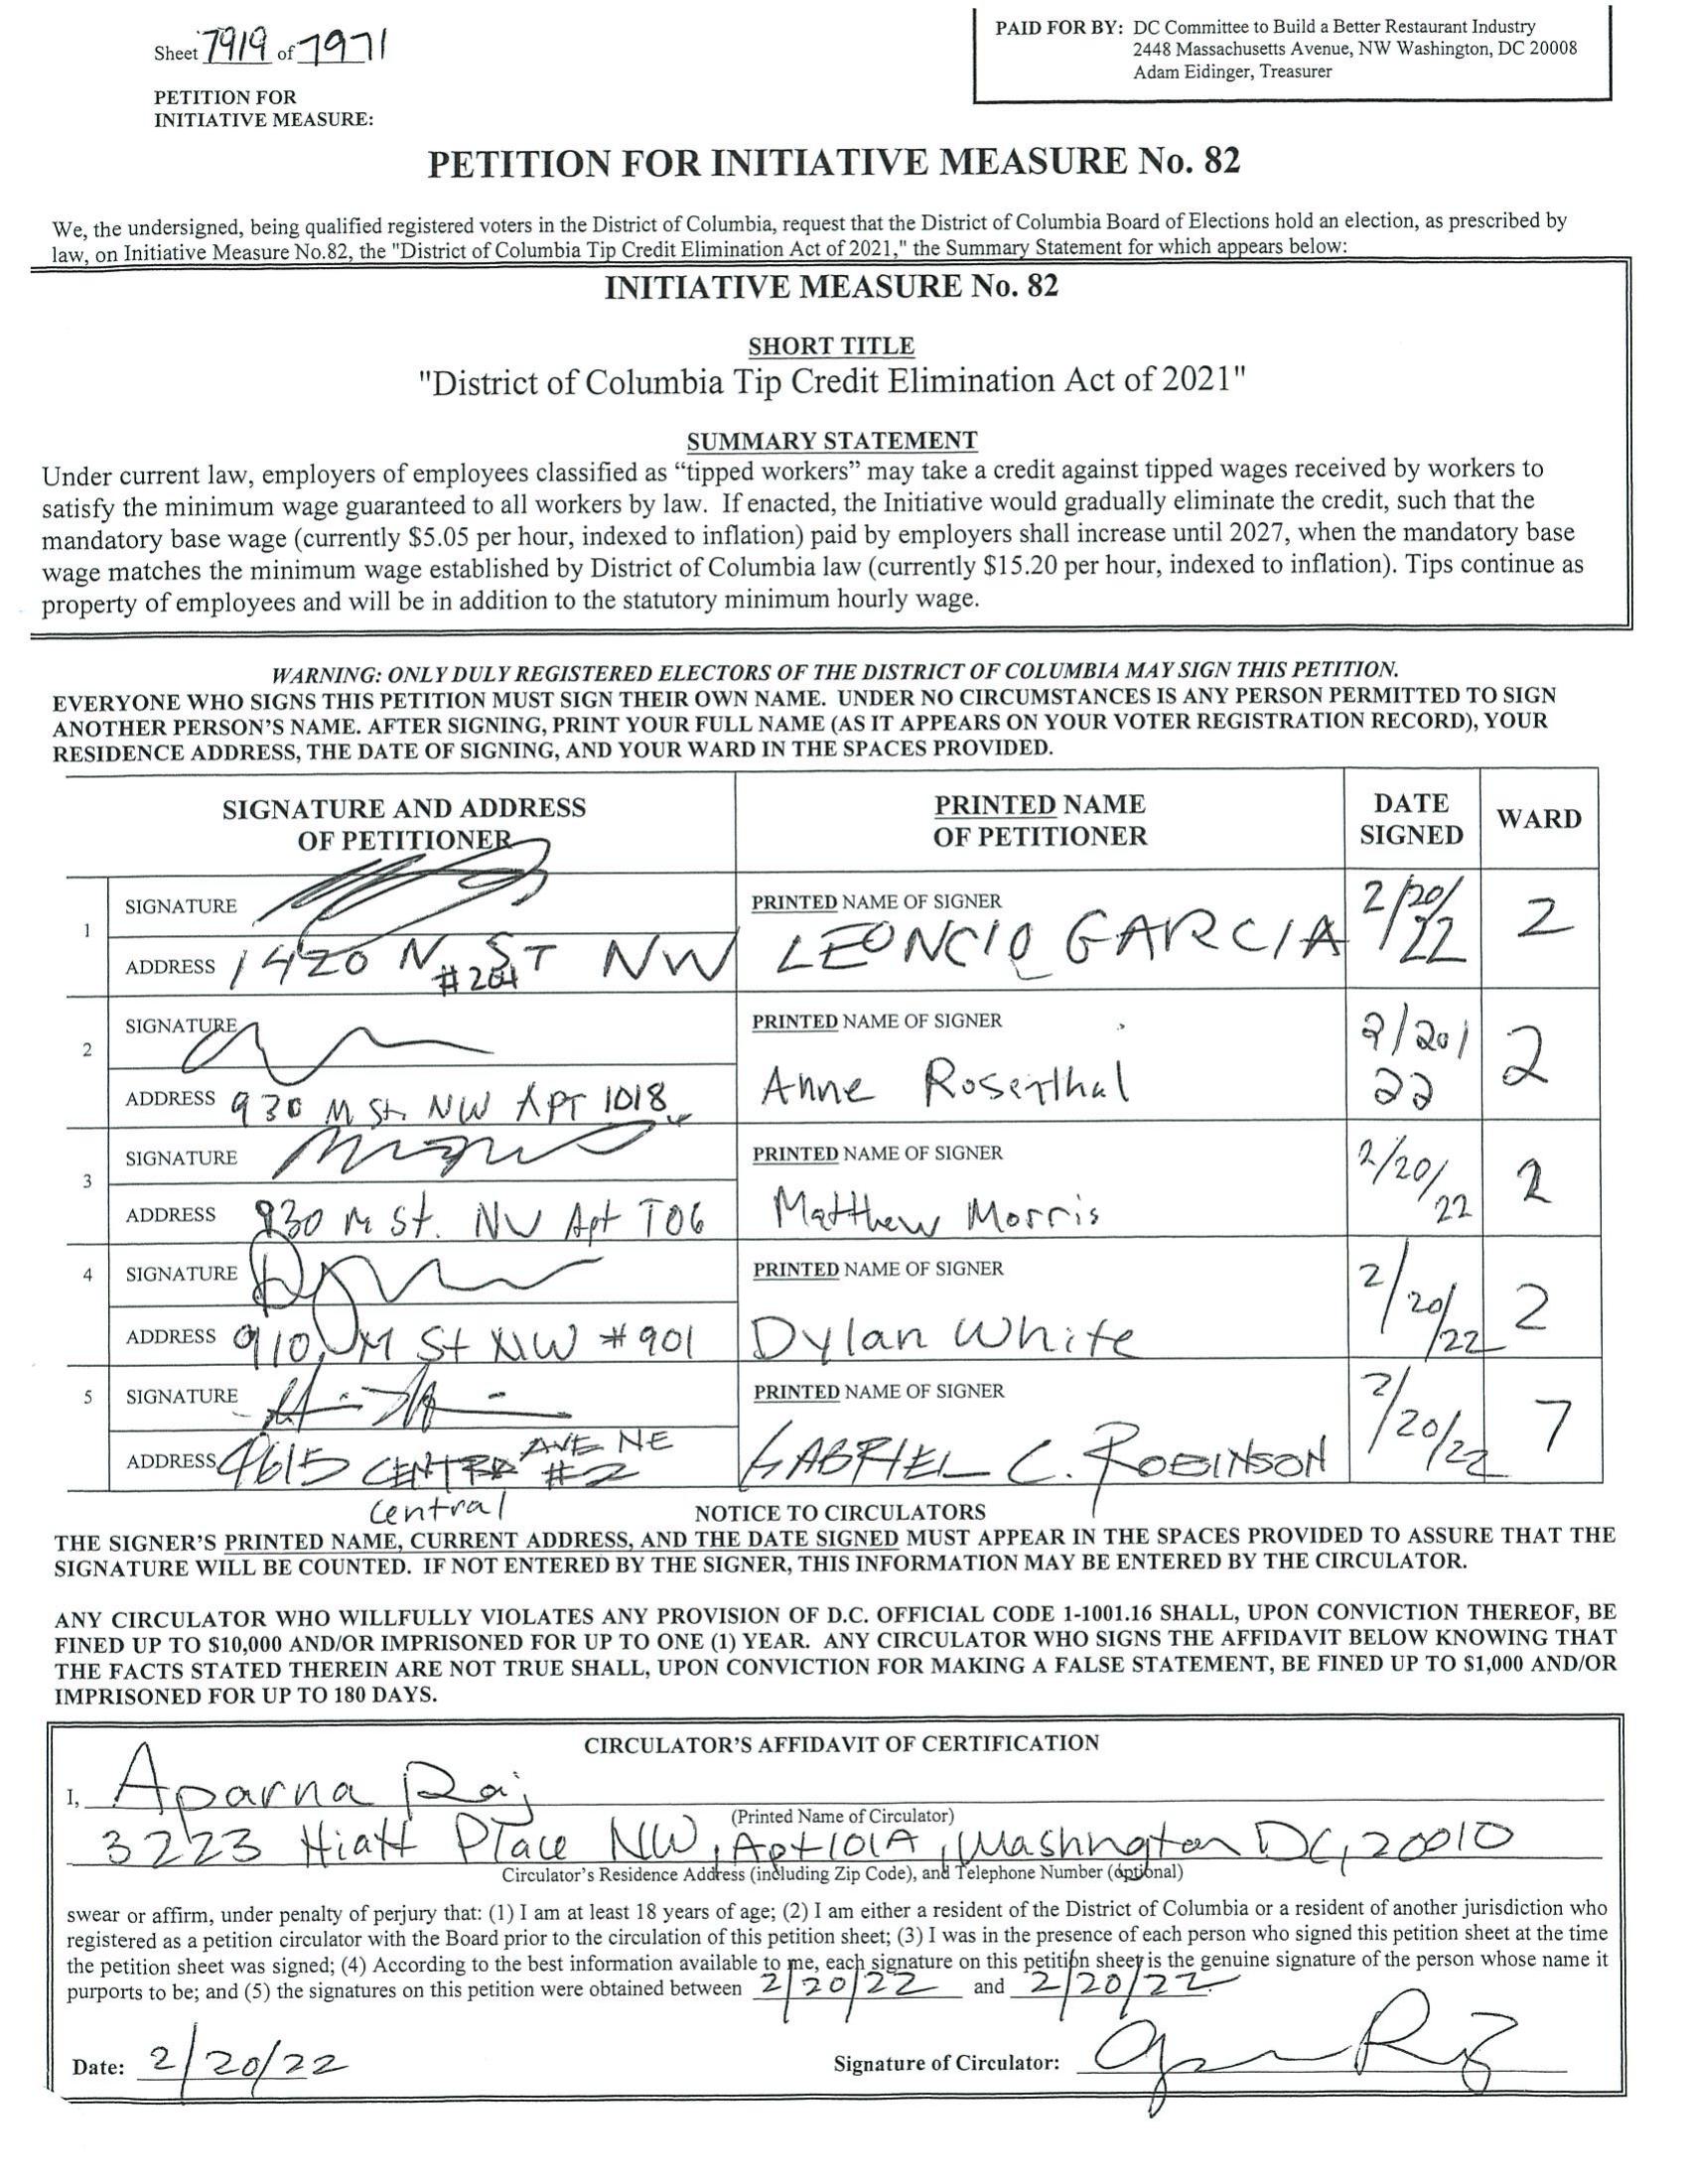 Sheet 7919 of 7971
PAID FOR BY: DC Committee to Build a Better Restaurant Industry
2448 Massachusetts Avenue, NW Washington, DC 20008
Adam Eidinger, Treasurer
PETITION FOR
INITIATIVE MEASURE:
PETITION FOR INITIATIVE MEASURE No. 82
We, the undersigned, being qualified registered voters in the District of Columbia, request that the District of Columbia Board of Elections hold an election, as prescribed by
law, on Initiative Measure No.82, the "District of Columbia Tip Credit Elimination Act of 2021," the Summary Statement for which appears below:
INITIATIVE MEASURE No. 82
SHORT TITLE
"District of Columbia Tip Credit Elimination Act of 2021"
SUMMARY STATEMENT
Under current law, employers of employees classified as “tipped workers” may take a credit against tipped wages received by workers to
satisfy the minimum wage guaranteed to all workers by law. If enacted, the Initiative would gradually eliminate the credit, such that the
mandatory base wage (currently $5.05 per hour, indexed to inflation) paid by employers shall increase until 2027, when the mandatory base
wage matches the minimum wage established by District of Columbia law (currently $15.20 per hour, indexed to inflation). Tips continue as
property of employees and will be in addition to the statutory minimum hourly wage.
WARNING: ONLY DULY REGISTERED ELECTORS OF THE DISTRICT OF COLUMBIA MAY SIGN THIS PETITION.
EVERYONE WHO SIGNS THIS PETITION MUST SIGN THEIR OWN NAME. UNDER NO CIRCUMSTANCES IS ANY PERSON PERMITTED TO SIGN
ANOTHER PERSON'S NAME. AFTER SIGNING, PRINT YOUR FULL NAME (AS IT APPEARS ON YOUR VOTER REGISTRATION RECORD), YOUR
RESIDENCE ADDRESS, THE DATE OF SIGNING, AND YOUR WARD IN THE SPACES PROVIDED.
SIGNATURE AND ADDRESS
OF PETITIONER
PRINTED NAME
OF PETITIONER
DATE
SIGNED
WARD
1
SIGNATURE
ADDRESS 1420 N ST NW
#204
PRINTED NAME OF SIGNER
LEONCIO GARCIA
2/20/
22
2
2
SIGNATURE
ADDRESS 930 M St. NW APT 1018
PRINTED NAME OF SIGNER
Anne Rosenthal
2/20/
22
2
3
SIGNATURE
ADDRESS 930 M St. NW Apt T06
PRINTED NAME OF SIGNER
Matthew Morris
2/20/
22
2
4
SIGNATURE
ADDRESS 910 M St NW #901
PRINTED NAME OF SIGNER
Dylan White
2/20/22
2
5
SIGNATURE
ADDRESS 4615 CENTRAL AVE NE
#2
Central
PRINTED NAME OF SIGNER
GABRIEL C. ROBINSON
2/20/22
7
NOTICE TO CIRCULATORS
THE SIGNER'S PRINTED NAME, CURRENT ADDRESS, AND THE DATE SIGNED MUST APPEAR IN THE SPACES PROVIDED TO ASSURE THAT THE
SIGNATURE WILL BE COUNTED. IF NOT ENTERED BY THE SIGNER, THIS INFORMATION MAY BE ENTERED BY THE CIRCULATOR.
ANY CIRCULATOR WHO WILLFULLY VIOLATES ANY PROVISION OF D.C. OFFICIAL CODE 1-1001.16 SHALL, UPON CONVICTION THEREOF, BE
FINED UP TO $10,000 AND/OR IMPRISONED FOR UP TO ONE (1) YEAR. ANY CIRCULATOR WHO SIGNS THE AFFIDAVIT BELOW KNOWING THAT
THE FACTS STATED THEREIN ARE NOT TRUE SHALL, UPON CONVICTION FOR MAKING A FALSE STATEMENT, BE FINED UP TO $1,000 AND/OR
IMPRISONED FOR UP TO 180 DAYS.
CIRCULATOR'S AFFIDAVIT OF CERTIFICATION
I, Aparna Raj
(Printed Name of Circulator)
3223 Hiatt Place NW, Apt 101A, Washington DC, 20010
Circulator's Residence Address (including Zip Code), and Telephone Number (optional)
swear or affirm, under penalty of perjury that: (1) I am at least 18 years of age; (2) I am either a resident of the District of Columbia or a resident of another jurisdiction who
registered as a petition circulator with the Board prior to the circulation of this petition sheet; (3) I was in the presence of each person who signed this petition sheet at the time
the petition sheet was signed; (4) According to the best information available to me, each signature on this petition sheet is the genuine signature of the person whose name it
purports to be; and (5) the signatures on this petition were obtained between 2/20/22 and 2/20/22
Date: 2/20/22
Signature of Circulator: